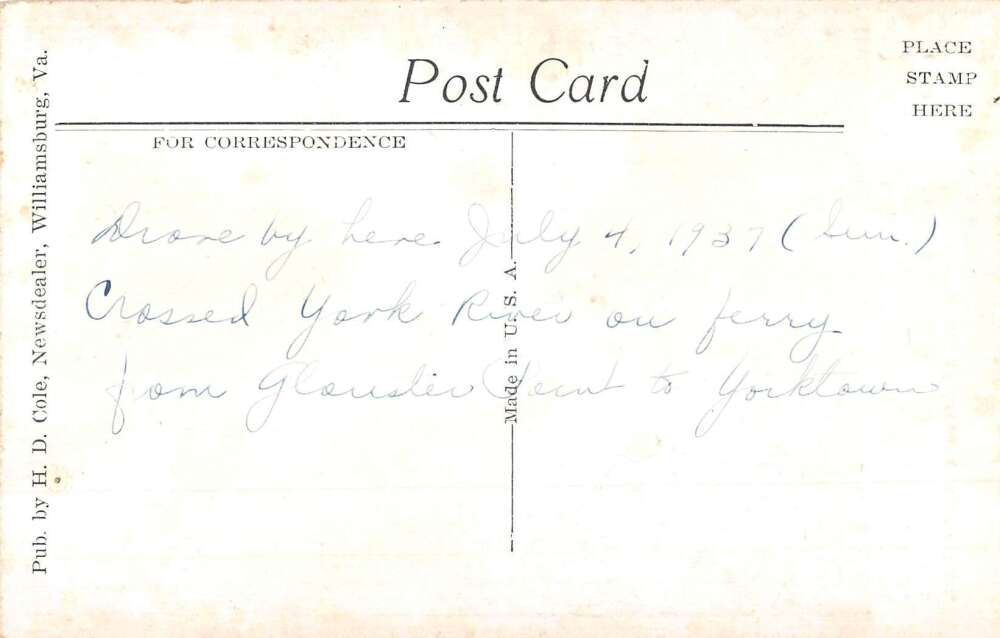 Post Card
PLACE
STAMP
HERE
FOR CORRESPONDENCE
Drove by here July 4, 1937 (Sun.)
Crossed York River on ferry
from Glouster Point to Yorktown
Made in U. S. A.
Pub. by H. D. Cole, Newsdealer, Williamsburg, Va.